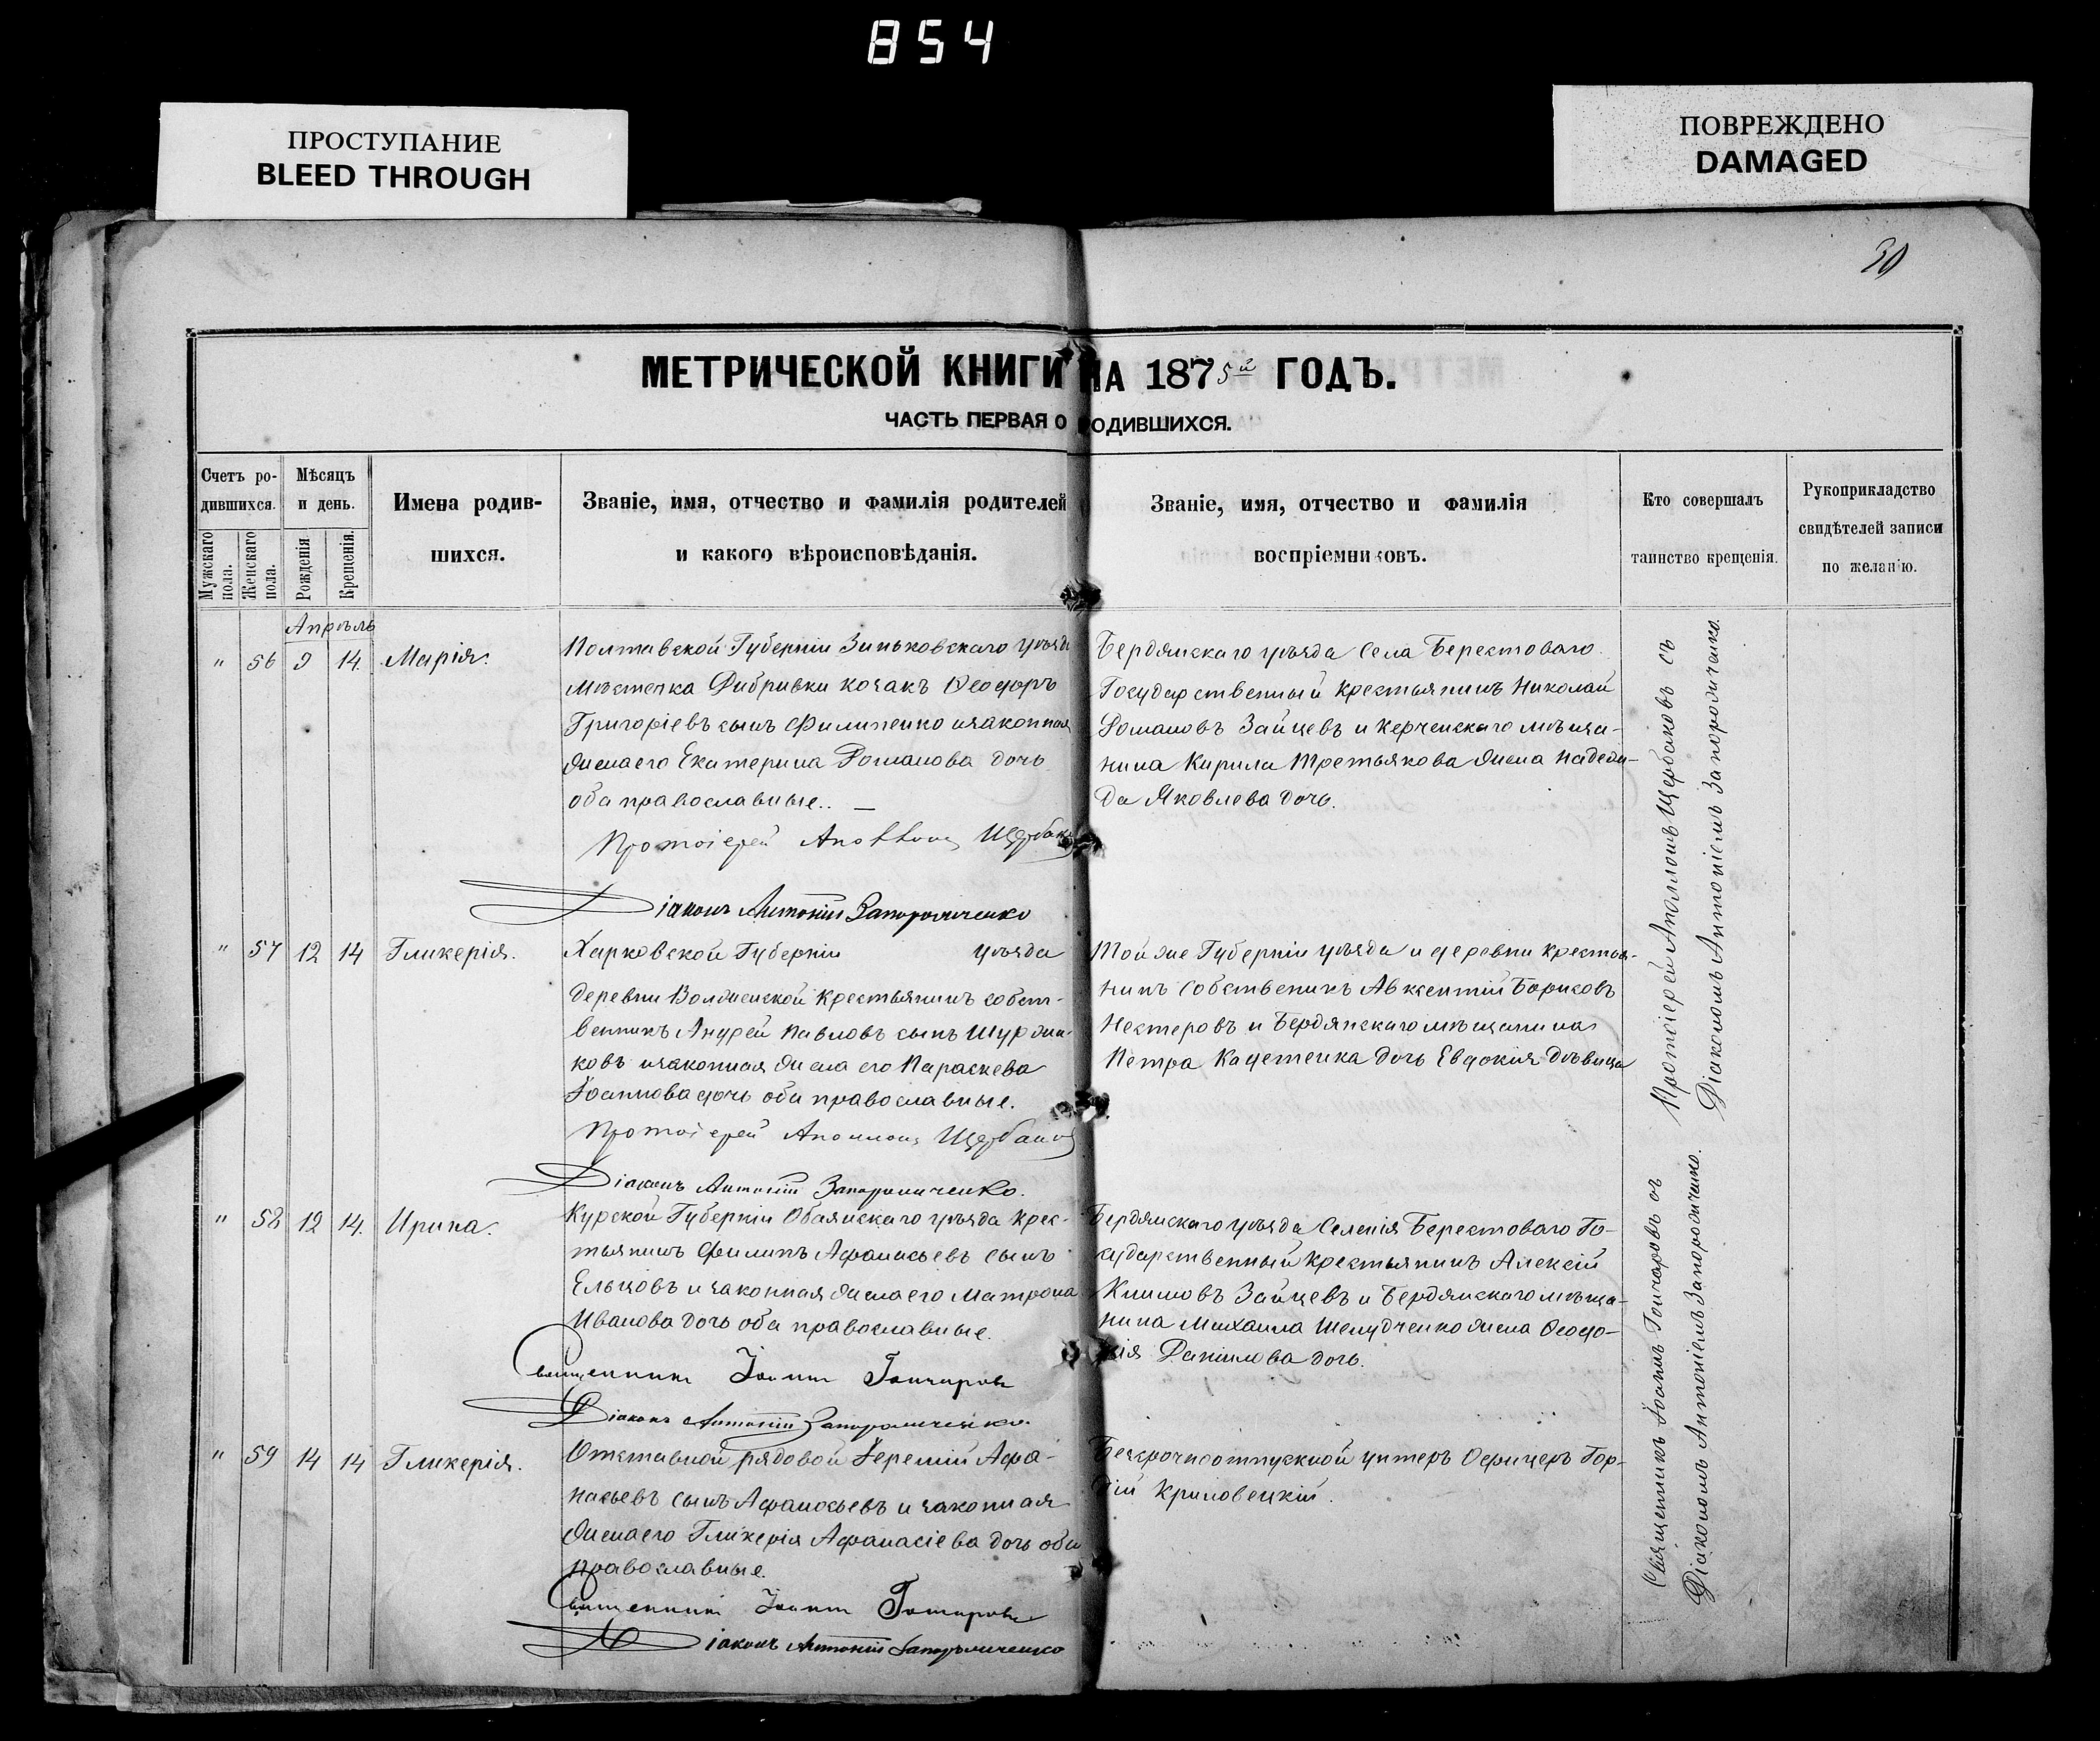 854
ПРОСТУПАНИЕ
BLEED THROUGH
ПОВРЕЖДЕНО
DAMAGED
30
МЕТРИЧЕСКОЙ КНИГИ НА 1875й ГОДЪ.
ЧАСТЬ ПЕРВАЯ О РОДИВШИХСЯ.
Счетъ ро-
дившихся.
Мужскаго пола.
Женскаго пола.
Мѣсяцъ
и день.
Рожденія
Крещенія.
Имена родив-
шихся.
Званіе, имя, отчество и фамилія родителей
и какого вѣроисповѣданія.
Званіе, имя, отчество и фамилія
воспріемниковъ.
Кто совершалъ
таинство крещенія.
Рукоприкладство
свидѣтелей записи
по желанію.
Апрѣль
" 56 9 14. Марія.
Полтавской Губерніи Зиньковскаго уѣзда
мѣстечка козакъ Ѳеодоръ
Григоріевъ сынъ Филипенко изаконная
жена его Екатерина Романова дочь
оба православные.. —
Протоіерей Аполлонъ Щербаковъ
Діаконъ Антоній Запорожченко
Бердянскаго уѣзда Села Берестоваго
Государственный крестьянинъ Николай
Романовъ Зайцевъ и Керченскаго мѣща-
нина Кирила Третьякова жена Надеж-
да Яковлева дочь.
" 57 12 14 Гликерія.
Харковской Губерніи уѣзда
деревни Волженской крестьянинъ собст-
венникъ Андрей Павловъ сынъ
ковъ изаконная жена его Параскева
Іоаннова дочь оба православные.
Протоіерей Аполлонъ Щербаковъ
Діаконъ Антоній Запорожченко.
Той же Губерніи уѣзда и деревни крестья-
нинъ собственикъ Авксентій Борисовъ
Нестеровъ и Бердянскаго мѣщанина
Петра Кадетенка дочь Евдокия дѣвица
" 58 12 14. Ирина.
Курской Губерніи Обаянскаго уѣзда крес-
тьянинъ Филипъ Афанасьевъ сынъ
Ельцовъ и законная жена его Матрона
Иванова дочь оба православные.
Священникъ Іоаннъ Гончаровъ
Діаконъ Антоній Запорожченко.
Бердянскаго уѣзда Селенія Берестоваго Го-
сударственный крестьянинъ Алексій
Климовъ Зайцевъ и Бердянскаго мѣща-
нина Михаила Шелудченко жена Ѳеодо-
сія Данилова дочь.
" 59 14 14 Гликерія.
Отставной рядовой Іеремій Афа-
насьевъ сынъ Афанасьевъ и законная
жена его Гликерія Афанасіева дочь оба
православные.
Священникъ Іоаннъ Гончаровъ
Діаконъ Антоній Запорожченко
Безсрочноотпускной унтеръ Офицеръ Гор-
дій Криловецкій.
Протоіерей Аполлонъ Щербаковъ съ
Діакономъ Антоніемъ Запорожченко.
Священникъ Іоаннъ Гончаровъ съ
Діакономъ Антоніемъ Запорожченко.